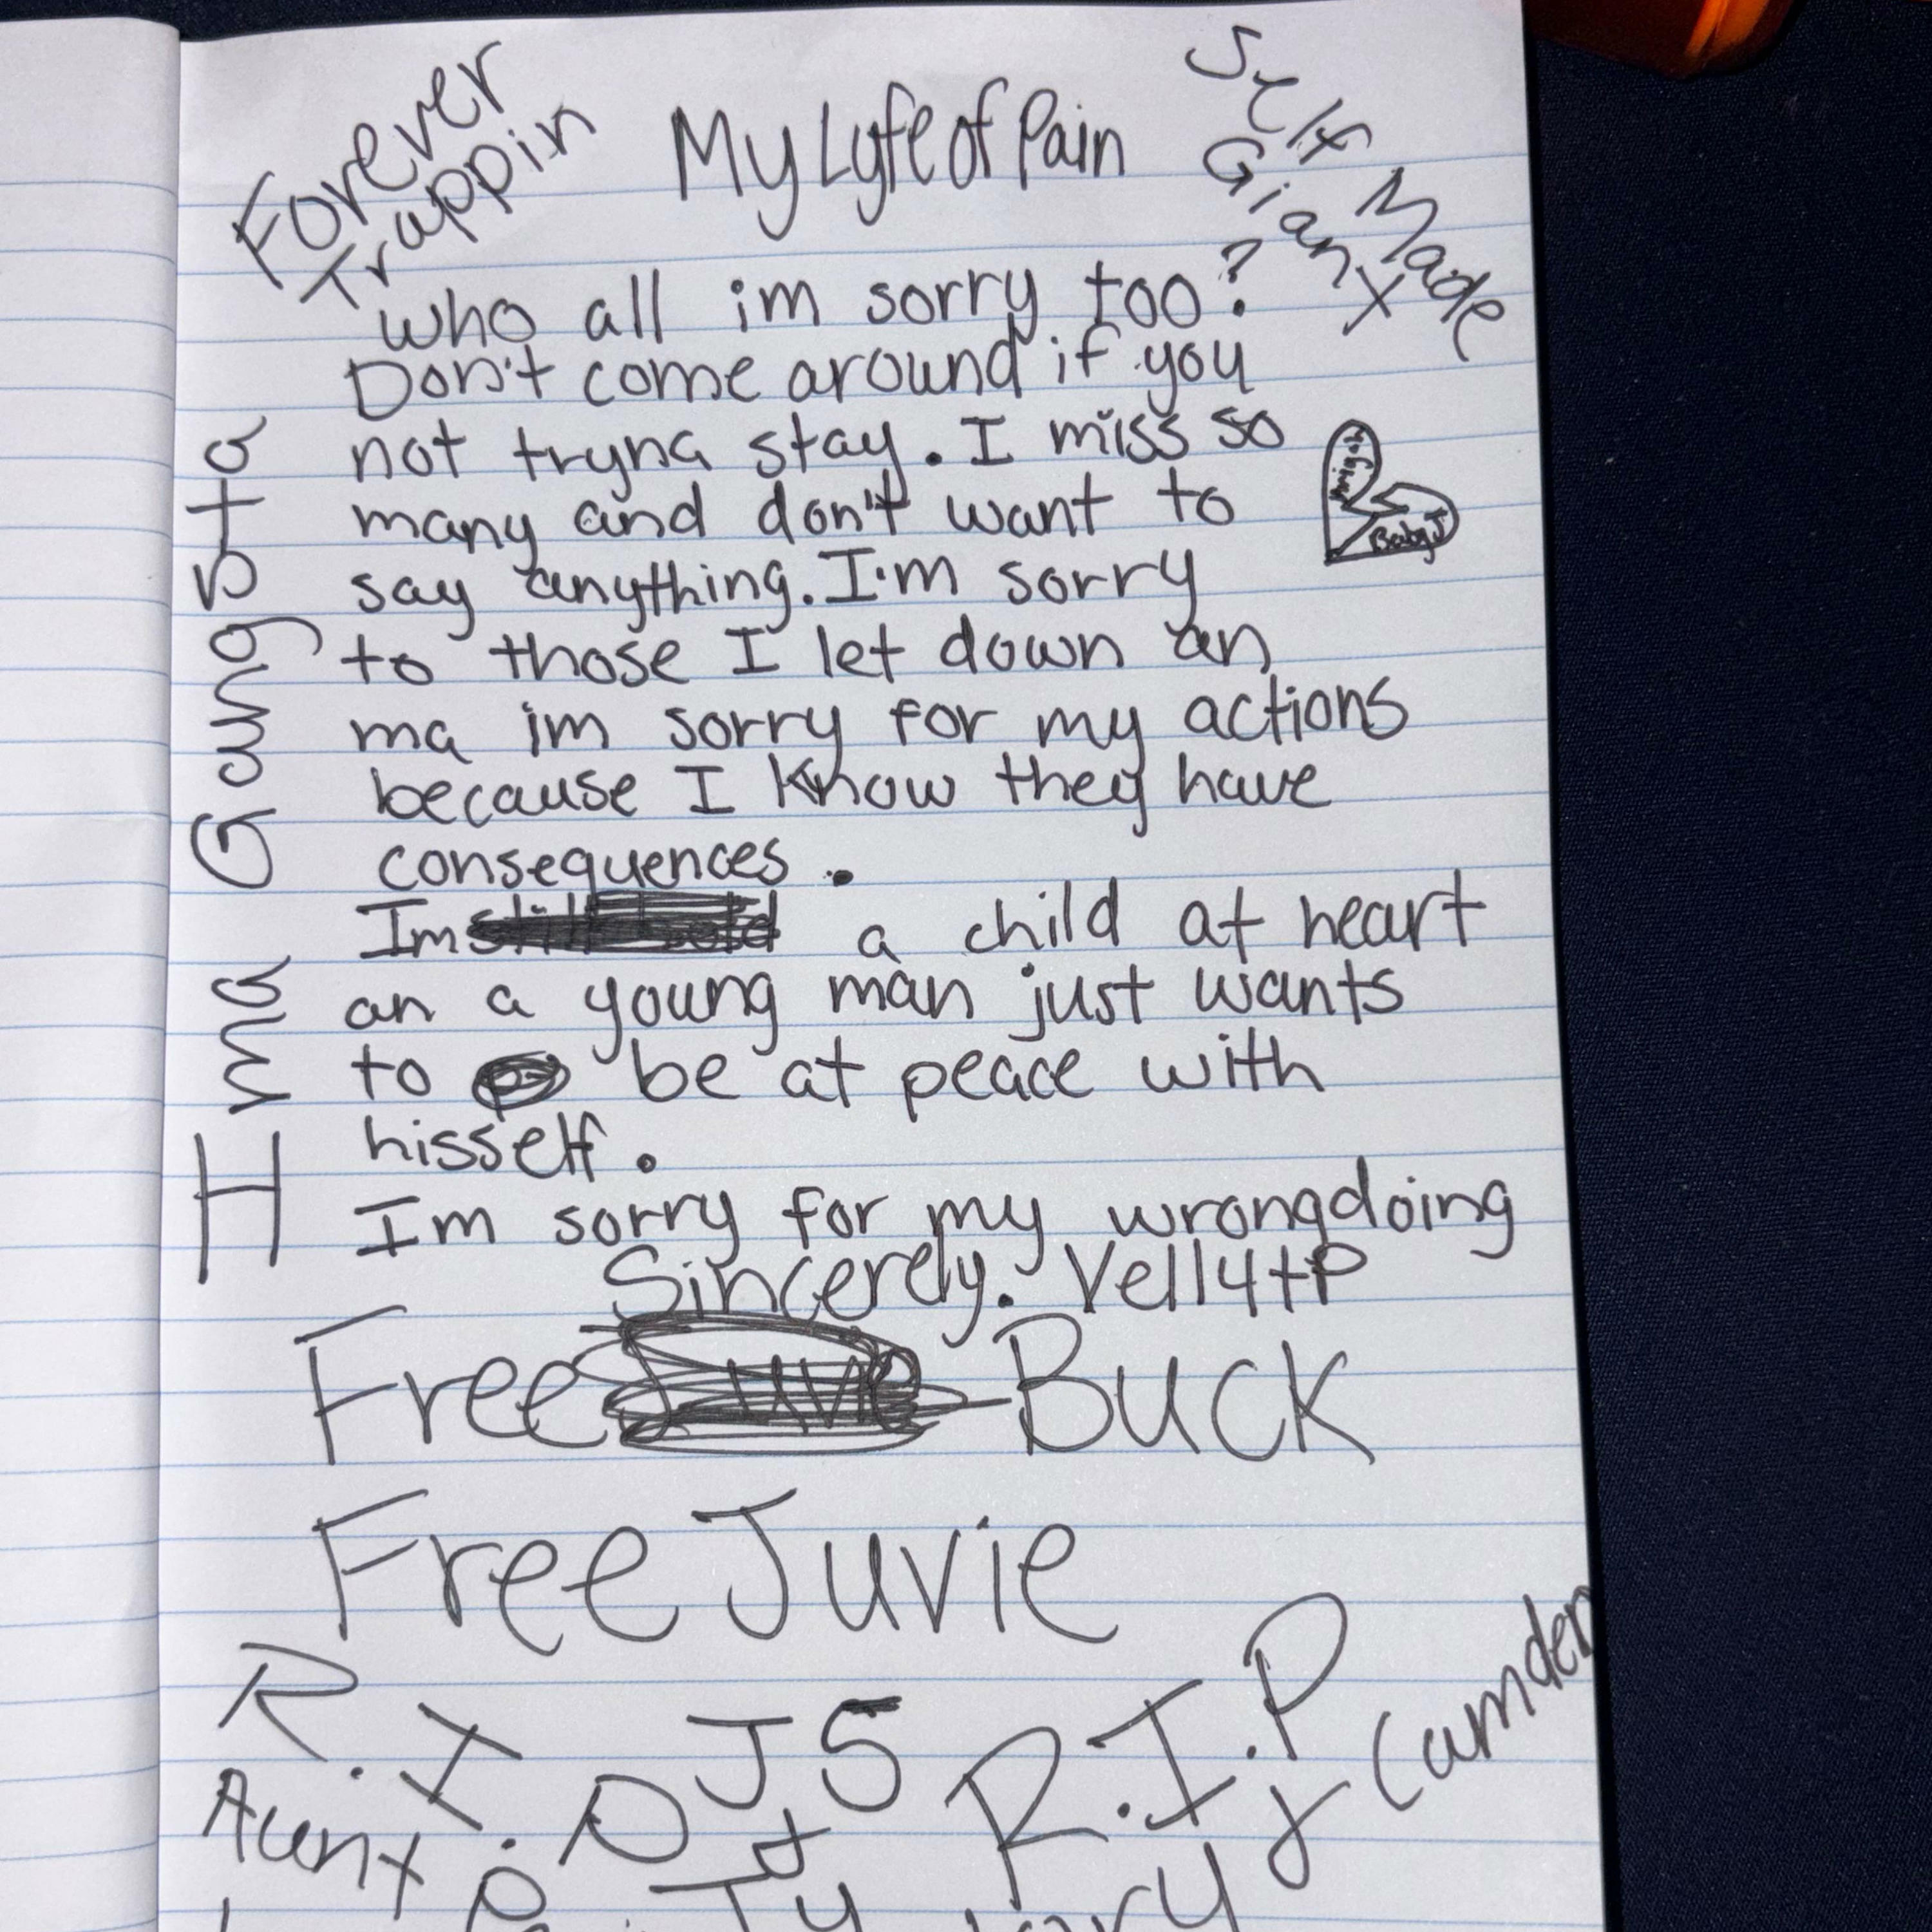 Forever
Trappin
My Lyfe of Pain
Self Made
Giant
who all im sorry too?
Don't come around if you
not tryna stay. I miss so
many and don't want to
say anything. I'm sorry
to those I let down an
ma im sorry for my actions
because I know they have
consequences.
Im a child at heart
an a young man just wants
to be at peace with
hisself.
Im sorry for my wrongdoing
Sincerely. Vell4tP
Free Buck
Free Juvie
R.I.P J5
R.I.P
Camden
Aunt
Hma Gangsta
Baby J